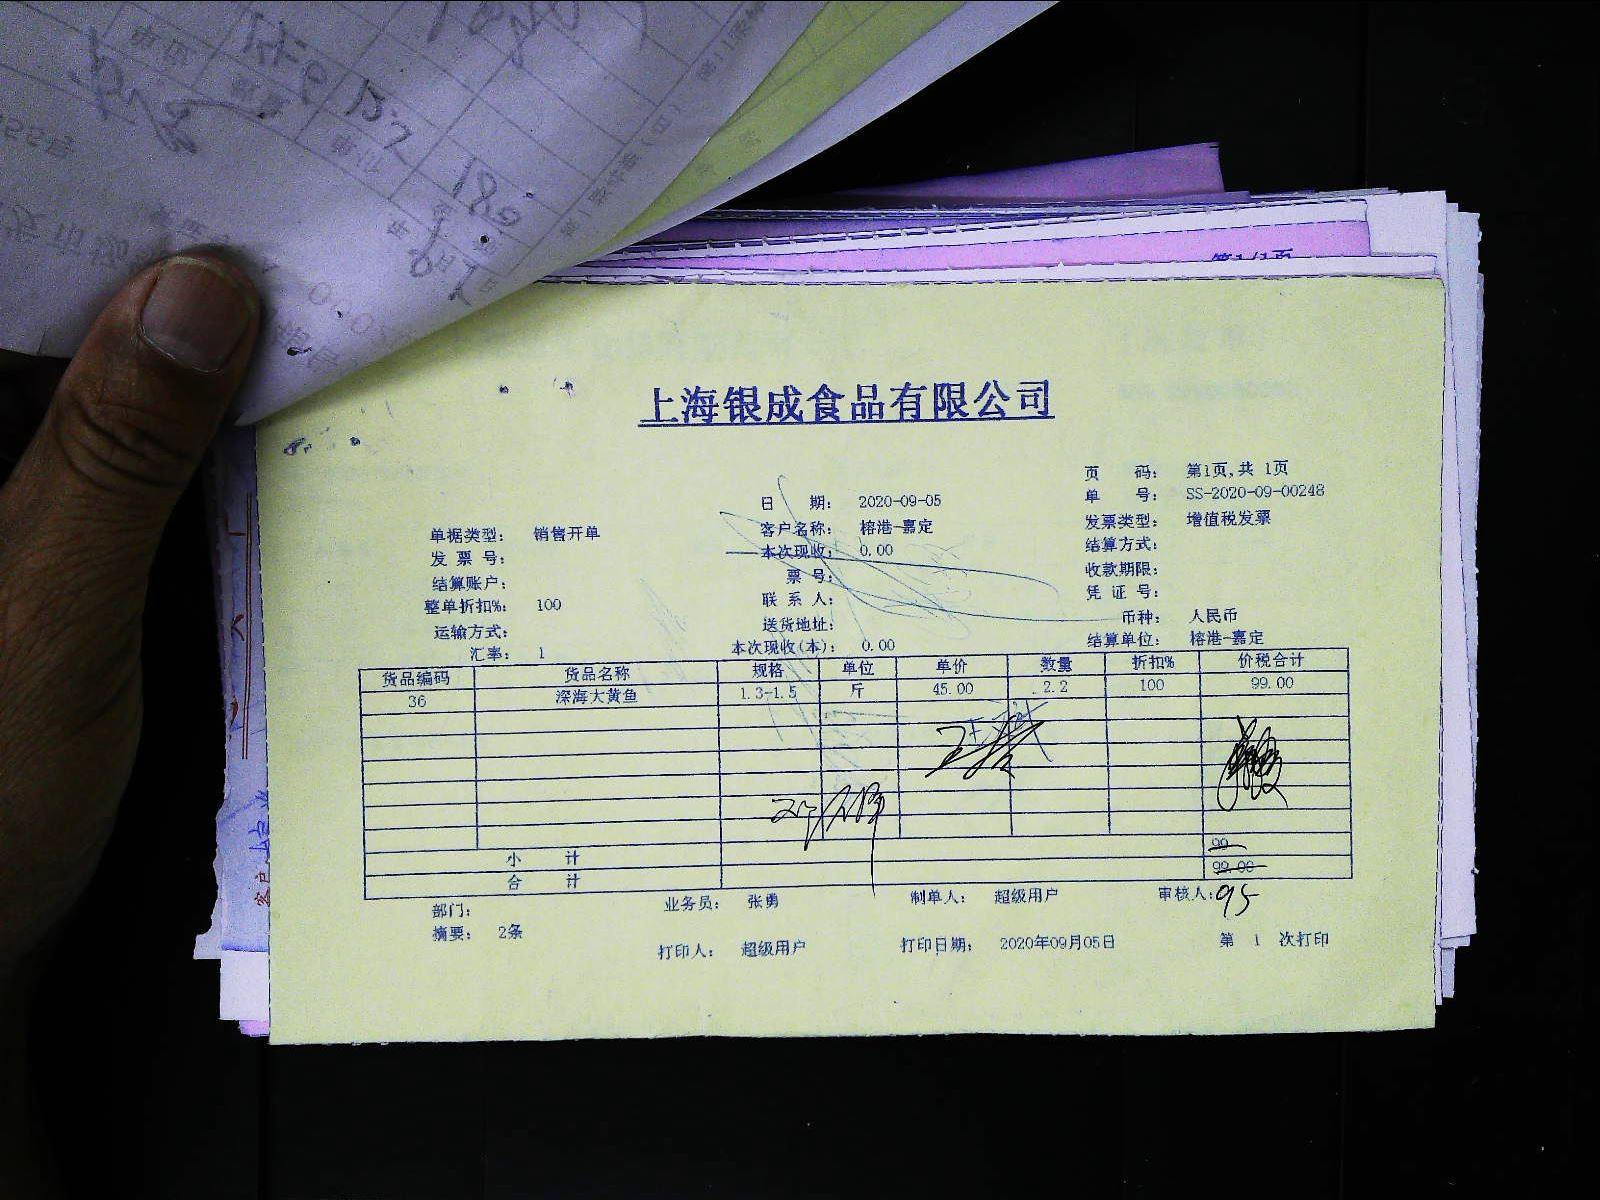 第1/1页
上海银成食品有限公司
页 码： 第1页,共 1页
日 期： 2020-09-05 单 号： SS-2020-09-00248
单据类型： 销售开单 客户名称： 榕港-嘉定 发票类型： 增值税发票
发 票 号： 本次现收： 0.00 结算方式：
结算账户： 票 号： 收款期限：
整单折扣%： 100 联 系 人： 凭 证 号：
运输方式： 送货地址： 币种： 人民币
汇率： 1 本次现收(本)： 0.00 结算单位： 榕港-嘉定
货品编码 货品名称 规格 单位 单价 数量 折扣% 价税合计
36 深海大黄鱼 1.3-1.5 斤 45.00 2.2 100 99.00
小 计 99
合 计 99.00
部门： 业务员： 张勇 制单人： 超级用户 审核人： 95
摘要： 2条 打印人： 超级用户 打印日期： 2020年09月05日 第 1 次打印